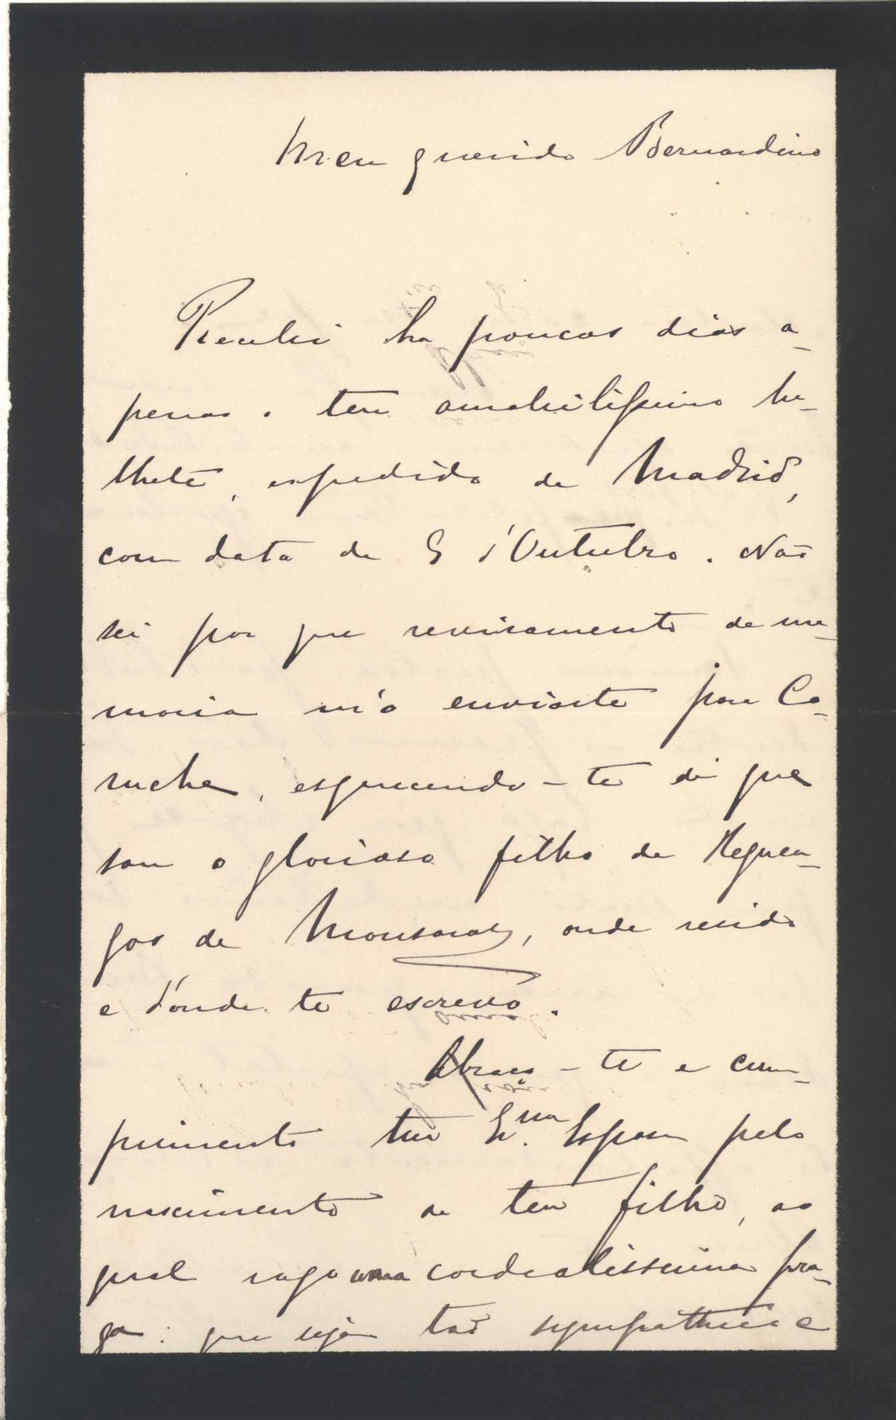 Meu querido Bernardino
Recebi ha poucos dias a-
penas o teu amabilissimo bi-
lhete, expedido de Madrid,
com data de 5 d'Outubro. Não
sei por que reviramento de me-
moria m'o enviaste para Co-
ruche, esquecendo-te de que
sou o glorioso filho de Reguen-
gos de Monsaraz, onde resido
e d'onde te escrevo.
Abraço-te e cum-
primento tua Ex.ma Esposa pelo
nascimento de teu filho, ao
qual rogo uma cordealissima pra-
ga: que seja tão sympathico e